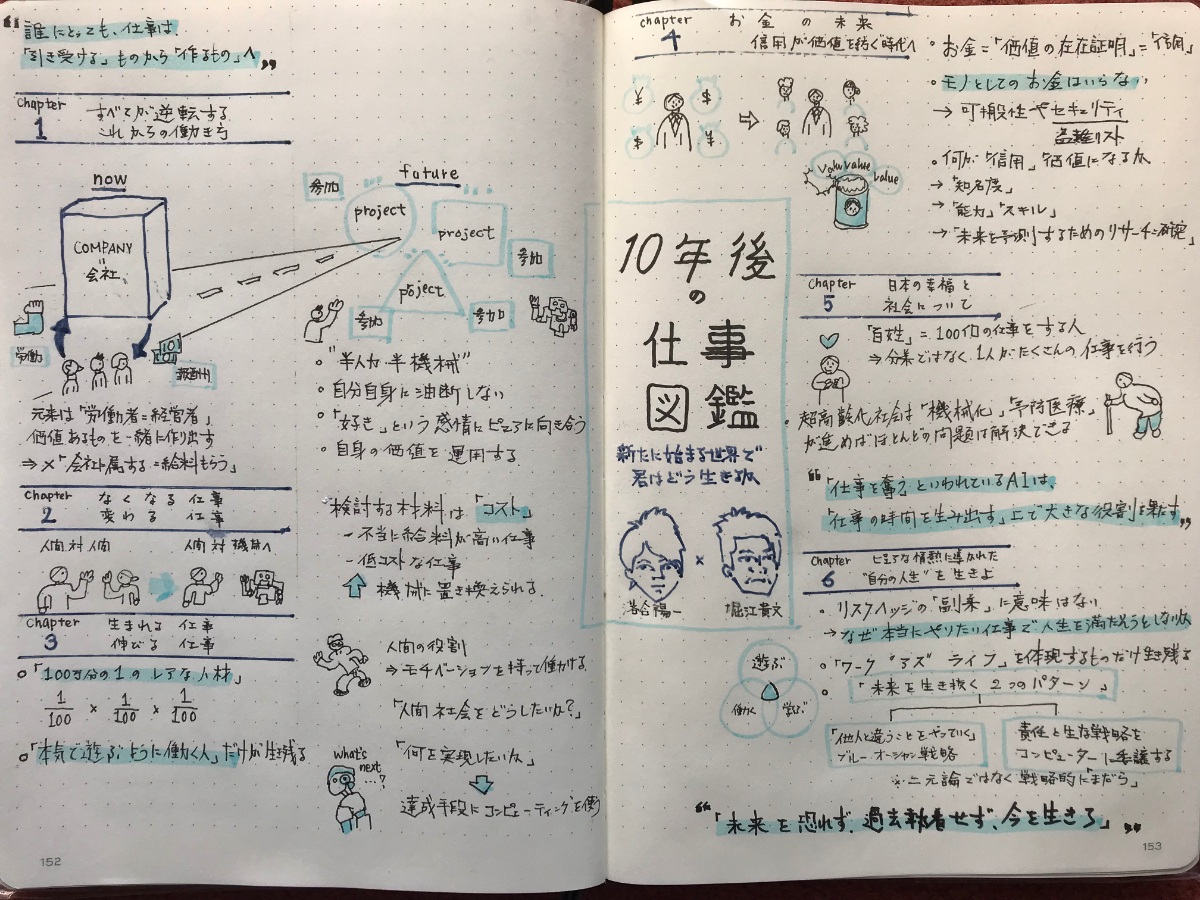 “ 誰にとっても、仕事は、
「引き受ける」ものから「作るもの」へ ”
chapter 1
すべてが逆転する
これからの働き方
now
COMPANY
=
会社
労働
報酬
future
参加
project
project
project
参加
参加
参加
元来は「労働者=経営者」
価値あるものを一緒に作り出す
⇒×「会社に属する=給料もらう」
・"半人力・半機械"
・自分自身に油断しない
・「好き」という感情にピュアに向き合う
・自身の価値を運用する
Chapter 2
なくなる仕事
変わる仕事
人間対人間
人間対機械へ
"検討する材料は「コスト」
- 不当に給料が高い仕事
- 低コストな仕事
機械に置き換えられる.
Chapter 3
生まれる仕事
伸びる仕事
○「100万分の1のレアな人材」
1/100 × 1/100 × 1/100
○「本気で遊ぶように働く人」だけが生き残る
人間の役割
⇒モチベーションを持って働ける.
「人間社会をどうしたいか?」
what's next ...?
「何を実現したいか」
達成手段にコンピューティングを使う
152
chapter 4
お金の未来
信用が価値を紡ぐ時代へ
¥
$
$
¥
○ お金=「価値の存在証明」=「信用」
○ モノとしてのお金はいらない
→ 可搬性やセキュリティ
○ 何が「信用」価値になるか
→「知名度」
→「能力」「スキル」
→「未来を予測」するためのリサーチ=研究
value
value
value
10年後
の
仕事
図鑑
新たに始まる世界で
君はどう生きるか
落合陽一
×
堀江貴文
Chapter 5
日本の幸福と
社会について
「百姓」=100個の仕事をする人
⇒分業ではなく1人がたくさんの仕事を行う
・超高齢化社会は「機械化」「予防医療」
が進めばほとんどの問題は解決できる
“「仕事を奪う」といわれているAIは、
「仕事の時間を生み出す」上で大きな役割を果たす ”
Chapter 6
ピュアな情熱に導かれた
"自分の人生"を生きよ
・リスクヘッジの「副業」に意味はない
→なぜ本当にやりたい仕事で人生を満たそうとしないか
・「ワーク"アズ"ライフ」を体現するものだけ生き残る
○「未来を生き抜く2つのパターン」
遊ぶ
働く
学ぶ
「他人と違うことをやっていく」
ブルーオーシャン戦略
責任と生存戦略を
コンピューターに委譲する
※二元論ではなく戦略的に「まだら」
“「未来を恐れず、過去に執着せず、今を生きろ」”
153